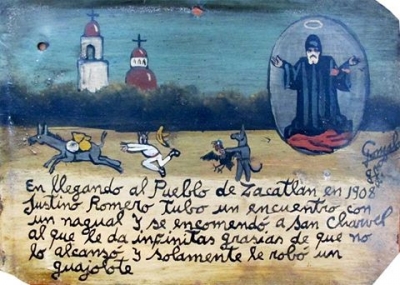 En llegando al Pueblo de Zacatlan en 1908
Justino Romero tubo un encuentro con
un nagual Y se encomendó a san Charvel
al que le da infinitas grasias de que no
lo alcansó y solamente le robó un
guajolote